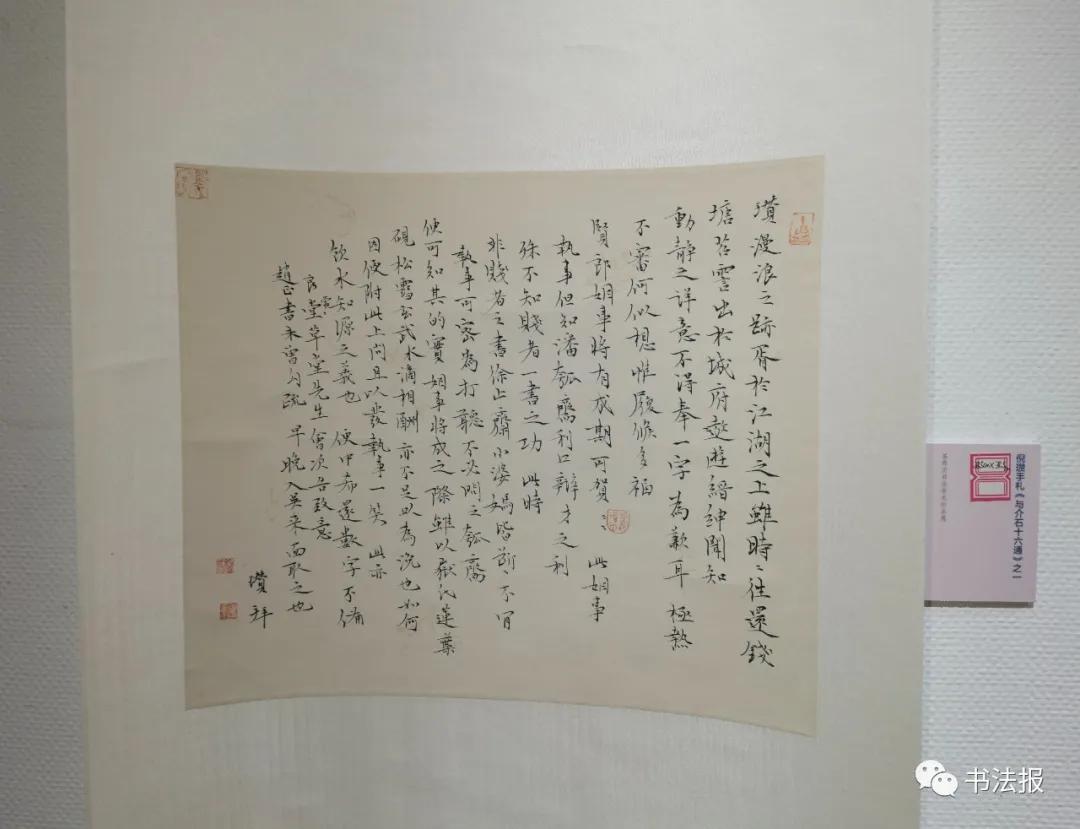 瓚漫浪之跡胥於江湖之上雖時〻往還錢
塘苕霅出於城府敖遊縉紳聞知
動靜之詳意不得奉一字為歉耳 極熱
不審何似想惟履候多福
賢郎姻事將有成期可賀〻 此姻事
執事但知潘瓠齋利口辯才之利
殊不知賤者一書之功 此時
非賤者之書徐止齋小婆媽皆 不肯
執事可密為打聽不必問之瓠齋
便可知其的實 姻事將成之際雖以 蓮葉
硯松雪玄武水滴相酬亦不足以為洗也如何
因便附此上問且以發執事一笑 此亦
飲水知源之義也 便中希還數字不備
良 堂草堂先生會次告致意
趙 書未曾 疏 早晚入吳來面取之也
瓚拜
倪瓒手札《与介石十六通》之一
书法报